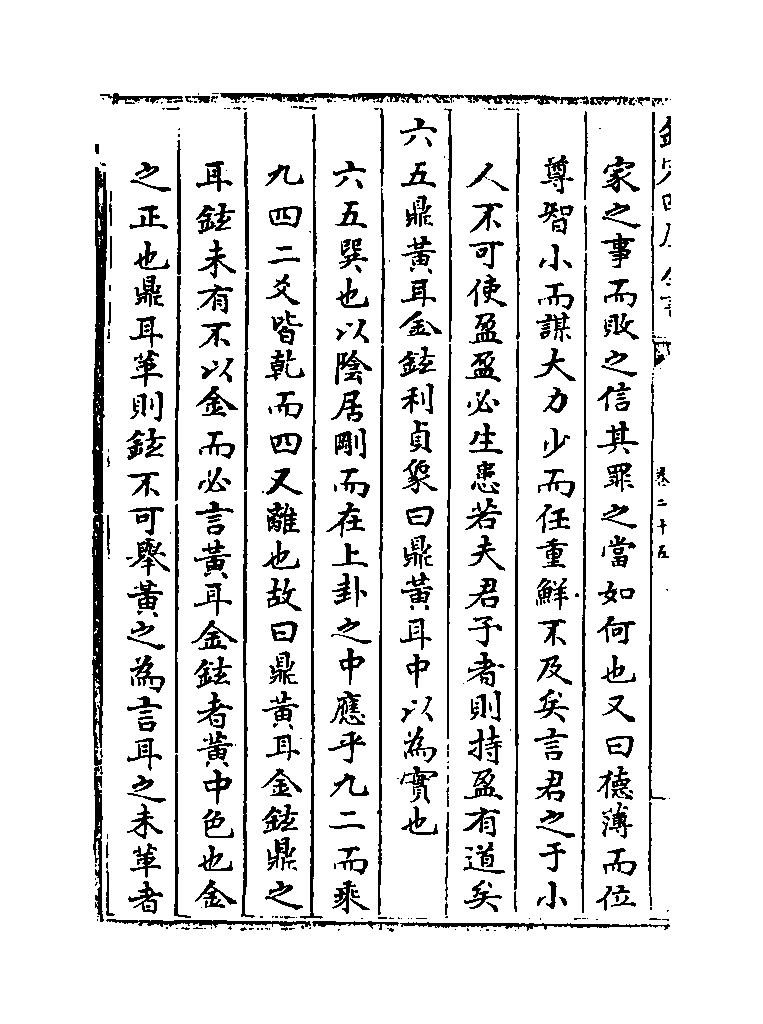 欽定四庫全書
卷二十五
家之事而敗之信其罪之當如何也又曰德薄而位
尊智小而謀大力少而任重鮮不及矣言君之于小
人不可使盈盈必生患若夫君子者則持盈有道矣
六五鼎黃耳金鉉利貞象曰鼎黃耳中以為實也
六五巽也以陰居剛而在上卦之中應乎九二而乘
九四二爻皆乾而四又離也故曰鼎黃耳金鉉鼎之
耳鉉未有不以金而必言黃耳金鉉者黃中色也金
之正也鼎耳革則鉉不可舉黃之為言耳之未革者